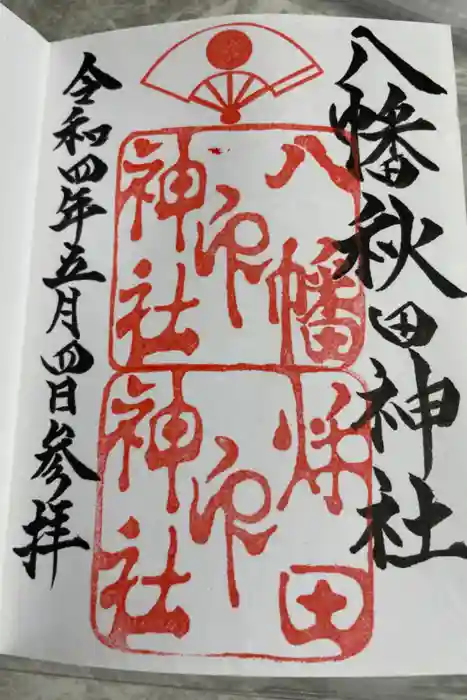 八幡秋田神社
八幡
神社
印
秋田
神社
印
令和四年五月四日参拝